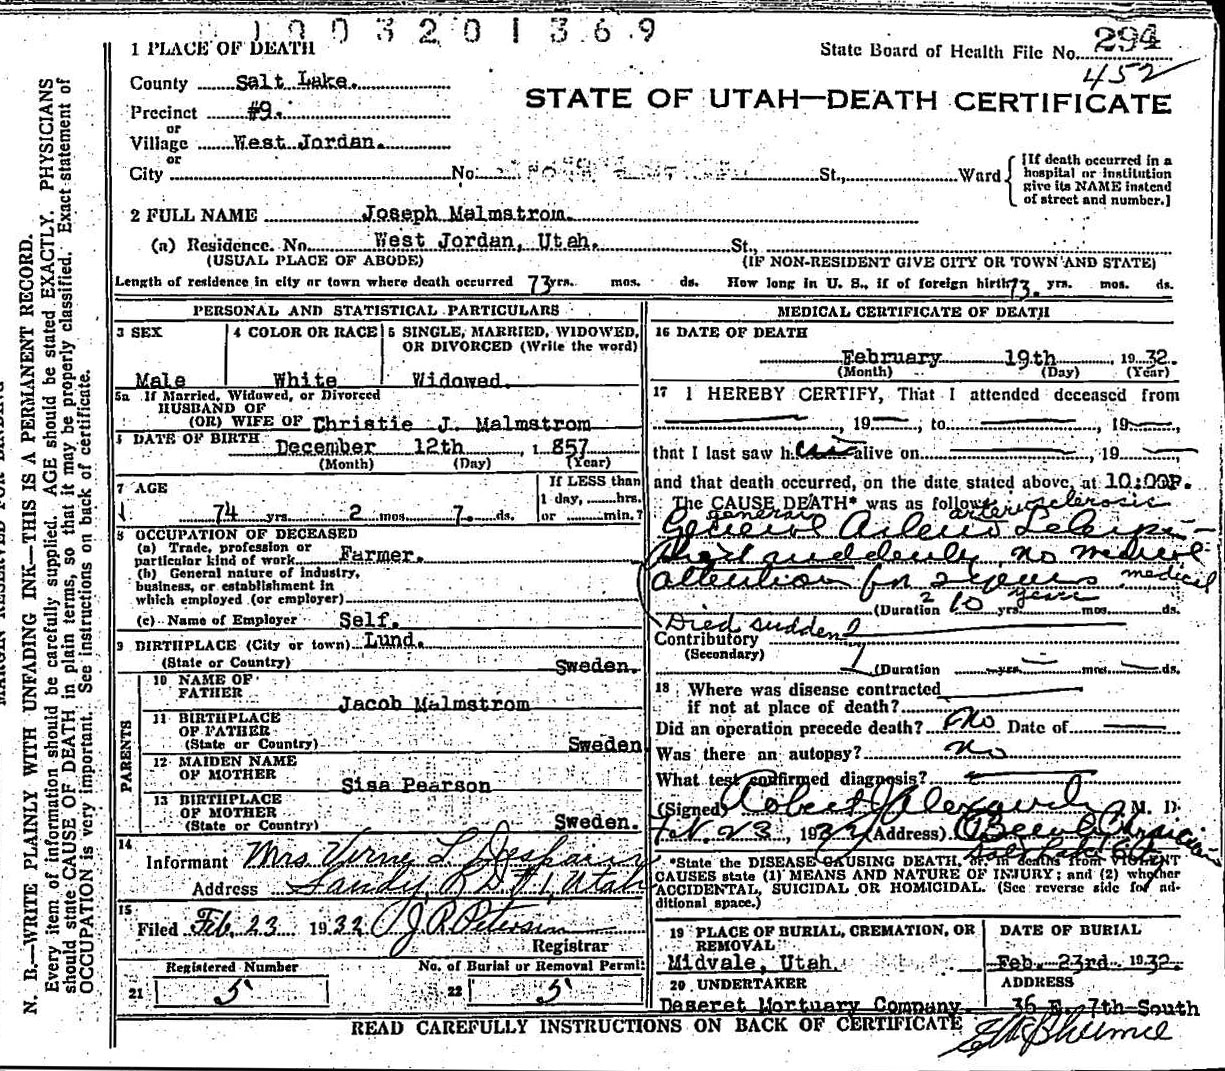 1003201369
1 PLACE OF DEATH
State Board of Health File No. 294
452
County Salt Lake.
STATE OF UTAH—DEATH CERTIFICATE
Precinct #9.
or
Village West Jordan.
or
City No. St., Ward
[If death occurred in a
hospital or institution
give its NAME instead
of street and number.]
2 FULL NAME Joseph Malmstrom.
(a) Residence. No. West Jordan, Utah. St.,
(USUAL PLACE OF ABODE) (IF NON-RESIDENT GIVE CITY OR TOWN AND STATE)
Length of residence in city or town where death occurred 73 yrs. mos. ds. How long in U. S., if of foreign birth 73. yrs. mos. ds.
PERSONAL AND STATISTICAL PARTICULARS
3 SEX
Male
4 COLOR OR RACE
White
5 SINGLE, MARRIED, WIDOWED,
OR DIVORCED (Write the word)
Widowed.
5a If Married, Widowed, or Divorced
HUSBAND OF
(OR) WIFE OF Christie J. Malmstrom
DATE OF BIRTH
December 12th , 1 857
(Month) (Day) (Year)
7 AGE
74 yrs. 2 mos. 7. ds.
If LESS than
1 day, hrs.
or min.?
8 OCCUPATION OF DECEASED
(a) Trade, profession or
particular kind of work Farmer.
(b) General nature of industry,
business, or establishment in
which employed (or employer)
(c) Name of Employer Self.
9 BIRTHPLACE (City or town) Lund.
(State or Country) Sweden.
PARENTS
10 NAME OF
FATHER
Jacob Malmstrom
11 BIRTHPLACE
OF FATHER
(State or Country) Sweden
12 MAIDEN NAME
OF MOTHER
Sisa Pearson
13 BIRTHPLACE
OF MOTHER
(State or Country) Sweden.
14
Informant Mrs Verne L Despain
Address Sandy R D #1, Utah
15
Filed Feb. 23 1932 J R Peterson
Registrar
Registered Number
21 5
No. of Burial or Removal Permit
22 5
MEDICAL CERTIFICATE OF DEATH
16 DATE OF DEATH
February 19th , 19 32.
(Month) (Day) (Year)
17 I HEREBY CERTIFY, That I attended deceased from
, 19 , to , 19 ,
that I last saw h alive on , 19
and that death occurred, on the date stated above, at 10:00P.
The CAUSE DEATH* was as follows:
general arterio sclerosis
Died suddenly no medical
attention for 2 years medical
2 years
(Duration 10 yrs. mos. ds.
Died sudden
Contributory
(Secondary)
(Duration yrs. mos. ds.
18 Where was disease contracted
if not at place of death?
Did an operation precede death? no Date of
Was there an autopsy? no
What test confirmed diagnosis?
(Signed) Robert J M. D.
Feb. 23, 1932 (Address)
*State the DISEASE CAUSING DEATH, or, in deaths from VIOLENT
CAUSES state (1) MEANS AND NATURE OF INJURY; and (2) whether
ACCIDENTAL, SUICIDAL OR HOMICIDAL. (See reverse side for ad-
ditional space.)
19 PLACE OF BURIAL, CREMATION, OR
REMOVAL
Midvale, Utah.
DATE OF BURIAL
Feb. 23rd 1932.
20 UNDERTAKER
Deseret Mortuary Company.
ADDRESS
36 E. 7th-South
READ CAREFULLY INSTRUCTIONS ON BACK OF CERTIFICATE
MARGIN RESERVED FOR BINDING
N. B.—WRITE PLAINLY WITH UNFADING INK—THIS IS A PERMANENT RECORD.
Every item of information should be carefully supplied. AGE should be stated EXACTLY. PHYSICIANS
should state CAUSE OF DEATH in plain terms, so that it may be properly classified. Exact statement of
OCCUPATION is very important. See instructions on back of certificate.